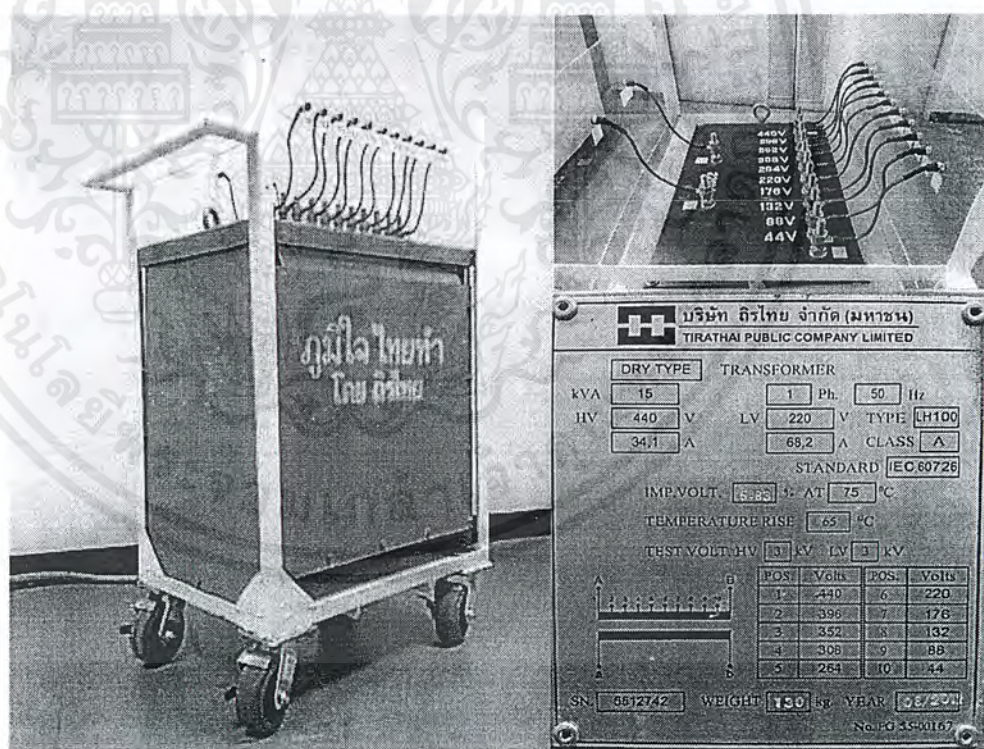 ภูมิใจ ไทยทำ
โดย ถิรไทย
440V
396V
352V
308V
264V
220V
176V
132V
88V
44V
บริษัท ถิรไทย จำกัด (มหาชน)
TIRATHAI PUBLIC COMPANY LIMITED
DRY TYPE TRANSFORMER
kVA 15 1 Ph. 50 Hz
HV 440 V LV 220 V TYPE LH100
34,1 A 68,2 A CLASS A
STANDARD IEC 60726
IMP.VOLT. % AT 75 °C
TEMPERATURE RISE 65 °C
TEST VOLT. HV 3 kV LV 3 kV
A B
POS. Volts POS. Volts
1 440 6 220
2 396 7 176
3 352 8 132
4 308 9 88
5 264 10 44
a b
SN. 5512742 WEIGHT 130 kg YEAR
No. FG 55-00167